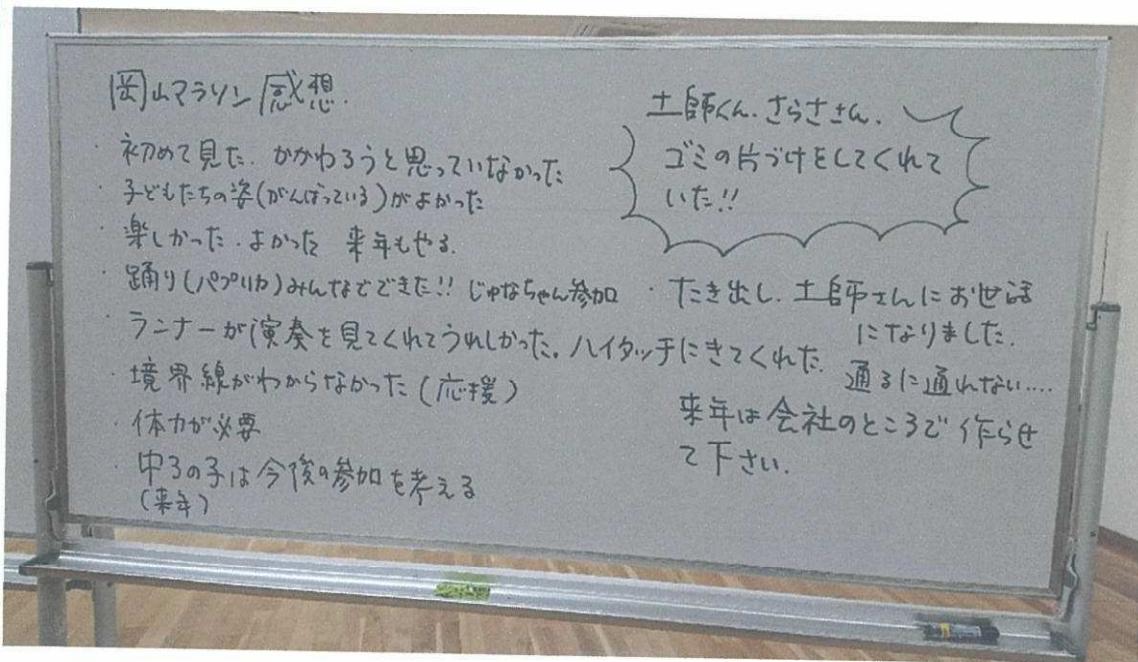 岡山マラソン感想.
・初めて見た. かかわろうと思っていなかった
・子どもたちの姿(がんばっている)がよかった
・楽しかった. よかった 来年もやる.
・踊り(パプリカ)みんなでできた!! じゅなちゃん参加
・ランナーが演奏を見てくれてうれしかった。ハイタッチにきてくれた.
・境界線がわからなかった(応援)
・体力が必要
・中3の子は今後の参加を考える
(来年)
土師くん. さらささん.
ゴミの片づけをしてくれて
いた!!
・たき出し. 土師さんにお世話
になりました.
通るに通れない....
来年は会社のところで作らせ
て下さい.